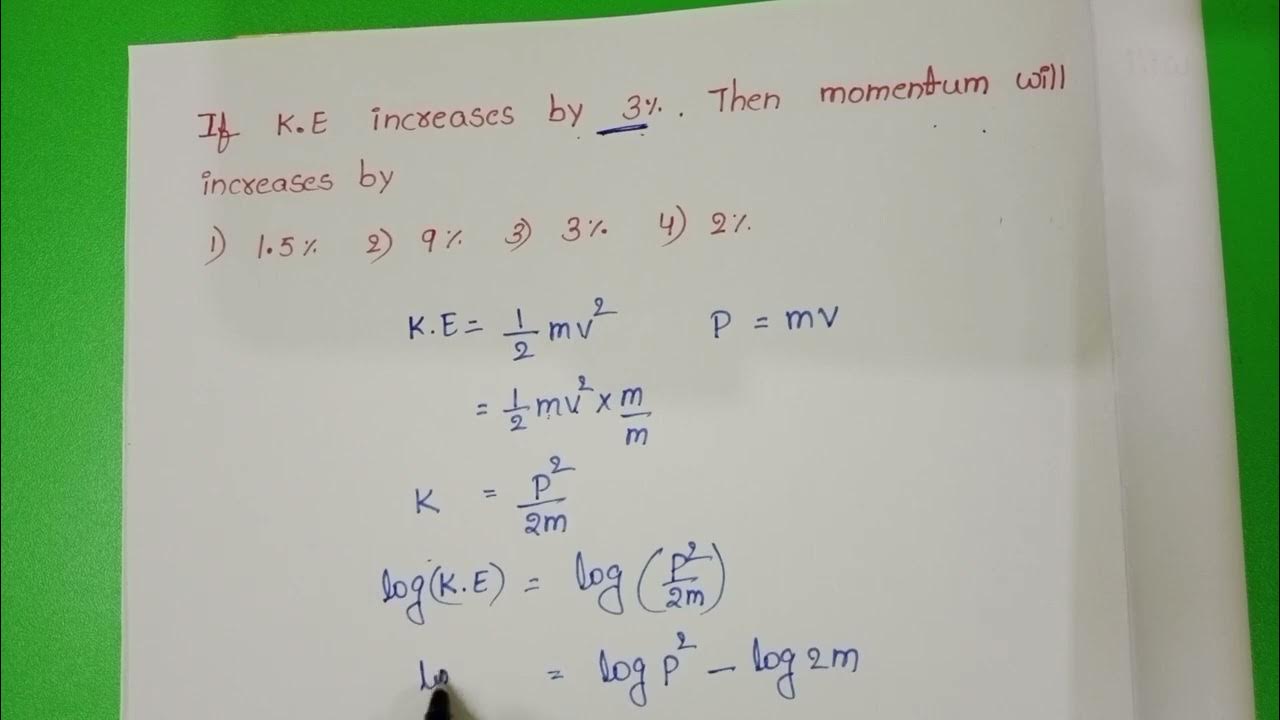 If K.E increases by 3%. Then momentum will
increases by
1) 1.5% 2) 9% 3) 3% 4) 2%
K.E = 1/2 mv² P = mv
= 1/2 mv² × m/m
K = P²/2m
log(K.E) = log(P²/2m)
= log P² - log 2m